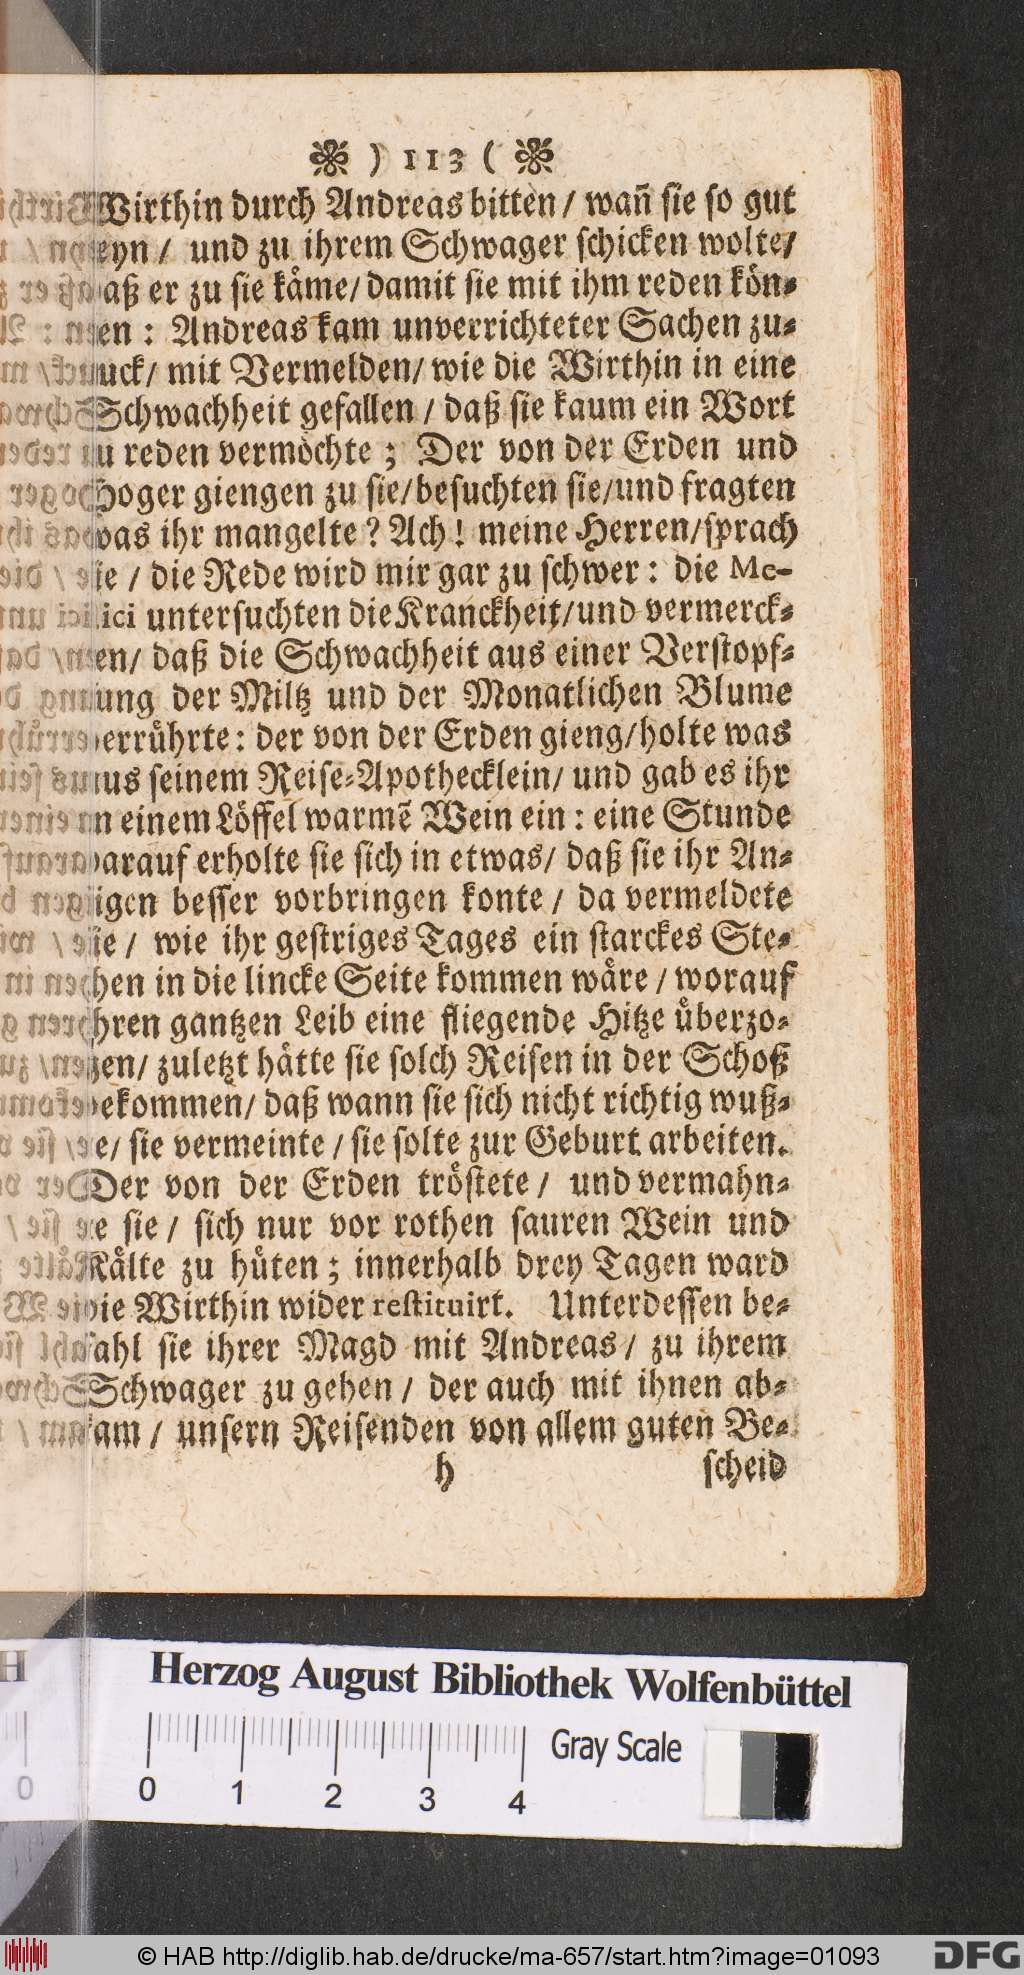 ) 113 (
Wirthin durch Andreas bitten / wañ sie so gut
seyn / und zu ihrem Schwager schicken wolte/
daß er zu sie kåme/ damit sie mit ihm reden kön-
nen : Andreas kam unverrichteter Sachen zu-
ruck/ mit Vermelden/ wie die Wirthin in eine
Schwachheit gefallen / daß sie kaum ein Wort
zu reden vermöchte ; Der von der Erden und
Hoger giengen zu sie/ besuchten sie/und fragten
was ihr mangelte ? Ach ! meine Herren/sprach
sie / die Rede wird mir gar zu schwer : die Me-
dici untersuchten die Kranckheit/und vermerck-
ten/ daß die Schwachheit aus einer Verstopf-
fung der Miltz und der Monatlichen Blume
herrührte : der von der Erden gieng/holte was
aus seinem Reise-Apothecklein/ und gab es ihr
in einem Löffel warmẽ Wein ein : eine Stunde
darauf erholte sie sich in etwas/ daß sie ihr An-
ligen besser vorbringen konte / da vermeldete
sie / wie ihr gestriges Tages ein starckes Ste-
chen in die lincke Seite kommen wåre / worauf
ihren gantzen Leib eine fliegende Hitze ůberzo-
gen/ zuletzt håtte sie solch Reisen in der Schoß
bekommen/ daß wann sie sich nicht richtig wuß-
te/ sie vermeinte / sie solte zur Geburt arbeiten.
Der von der Erden tröstete / und vermahn-
te sie / sich nur vor rothen sauren Wein und
Kälte zu hüten ; innerhalb drey Tagen ward
die Wirthin wider restituirt. Unterdessen be-
fahl sie ihrer Magd mit Andreas / zu ihrem
Schwager zu gehen / der auch mit ihnen ab-
kam / unsern Reisenden von allem guten Be-
h scheid
Herzog August Bibliothek Wolfenbüttel
0 1 2 3 4 Gray Scale
© HAB http://diglib.hab.de/drucke/ma-657/start.htm?image=01093 DFG